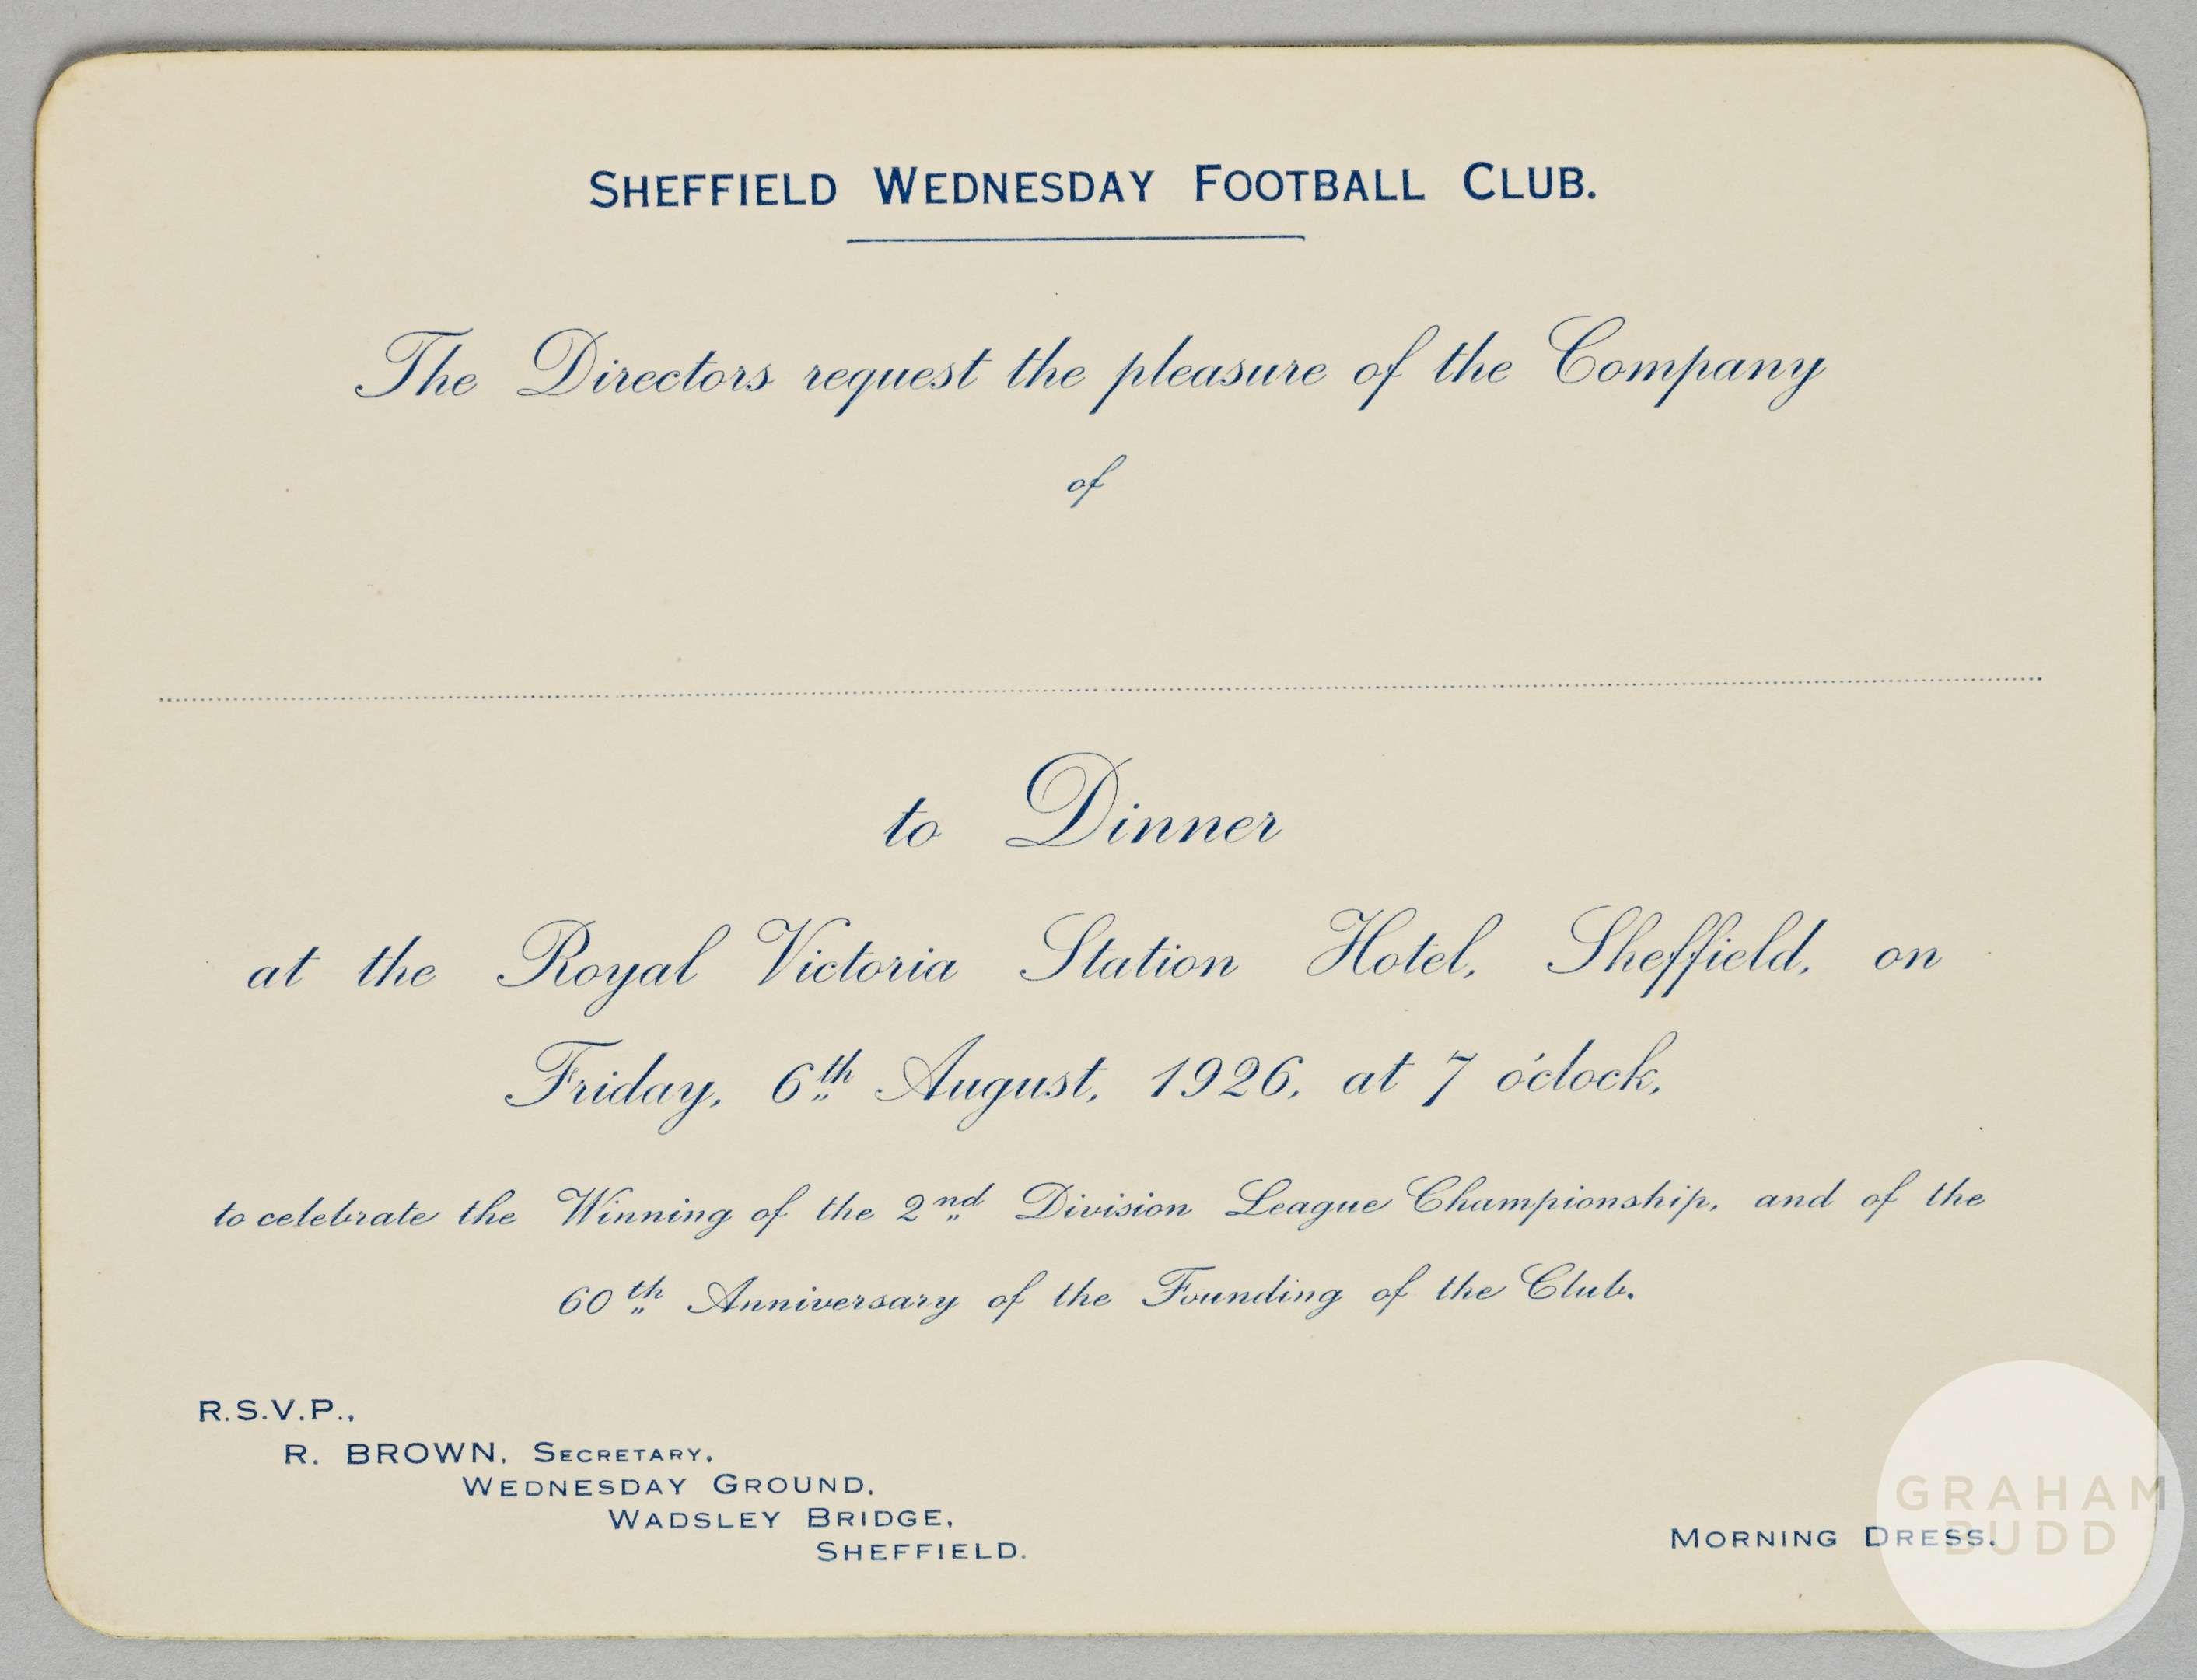 SHEFFIELD WEDNESDAY FOOTBALL CLUB.
The Directors request the pleasure of the Company
of
to Dinner
at the Royal Victoria Station Hotel, Sheffield, on
Friday, 6th August, 1926, at 7 o'clock,
to celebrate the Winning of the 2nd Division League Championship, and of the
60th Anniversary of the Founding of the Club.
R.S.V.P.,
R. BROWN, SECRETARY,
WEDNESDAY GROUND,
WADSLEY BRIDGE,
SHEFFIELD.
MORNING DRESS.
GRAHAM
BUDD